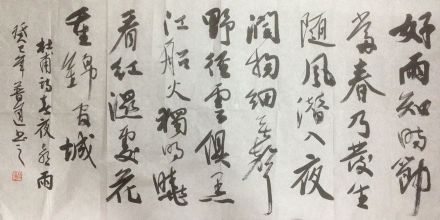 好雨知時節
當春乃發生
随風潜入夜
潤物細无聲
野徑雲俱黑
江船火獨明曉
看紅濕處花
重錦官城
杜甫詩春夜喜雨
癸巳年書之